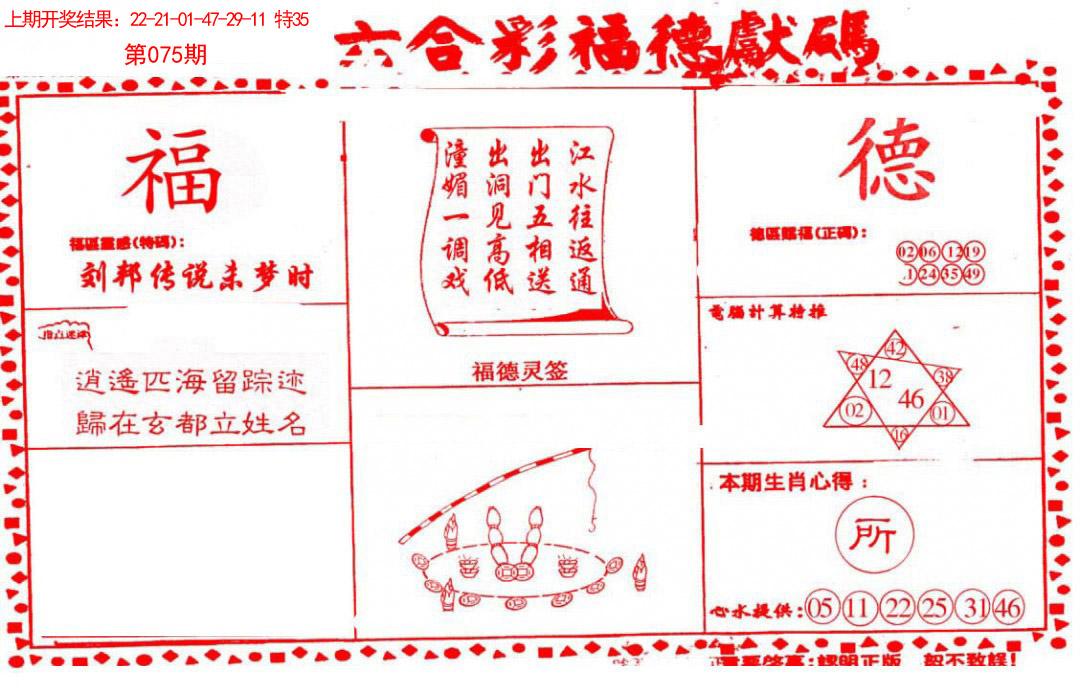 上期开奖结果：22-21-01-47-29-11 特35
第075期
六合彩福德獻碼
福
福區靈感(特碼)：
刘邦传说未梦时
指点迷津
逍遙四海留踪迹
歸在玄都立姓名
江水往返通
出门五相送
出洞见高低
潼媚一调戏
福德灵签
德
德區賜福(正碼)：
02 06 12 19
24 35 49
電腦計算特推
42
48 38
12
46
02 01
16
本期生肖心得：
所
心水提供：05 11 22 25 31 46
認明正版